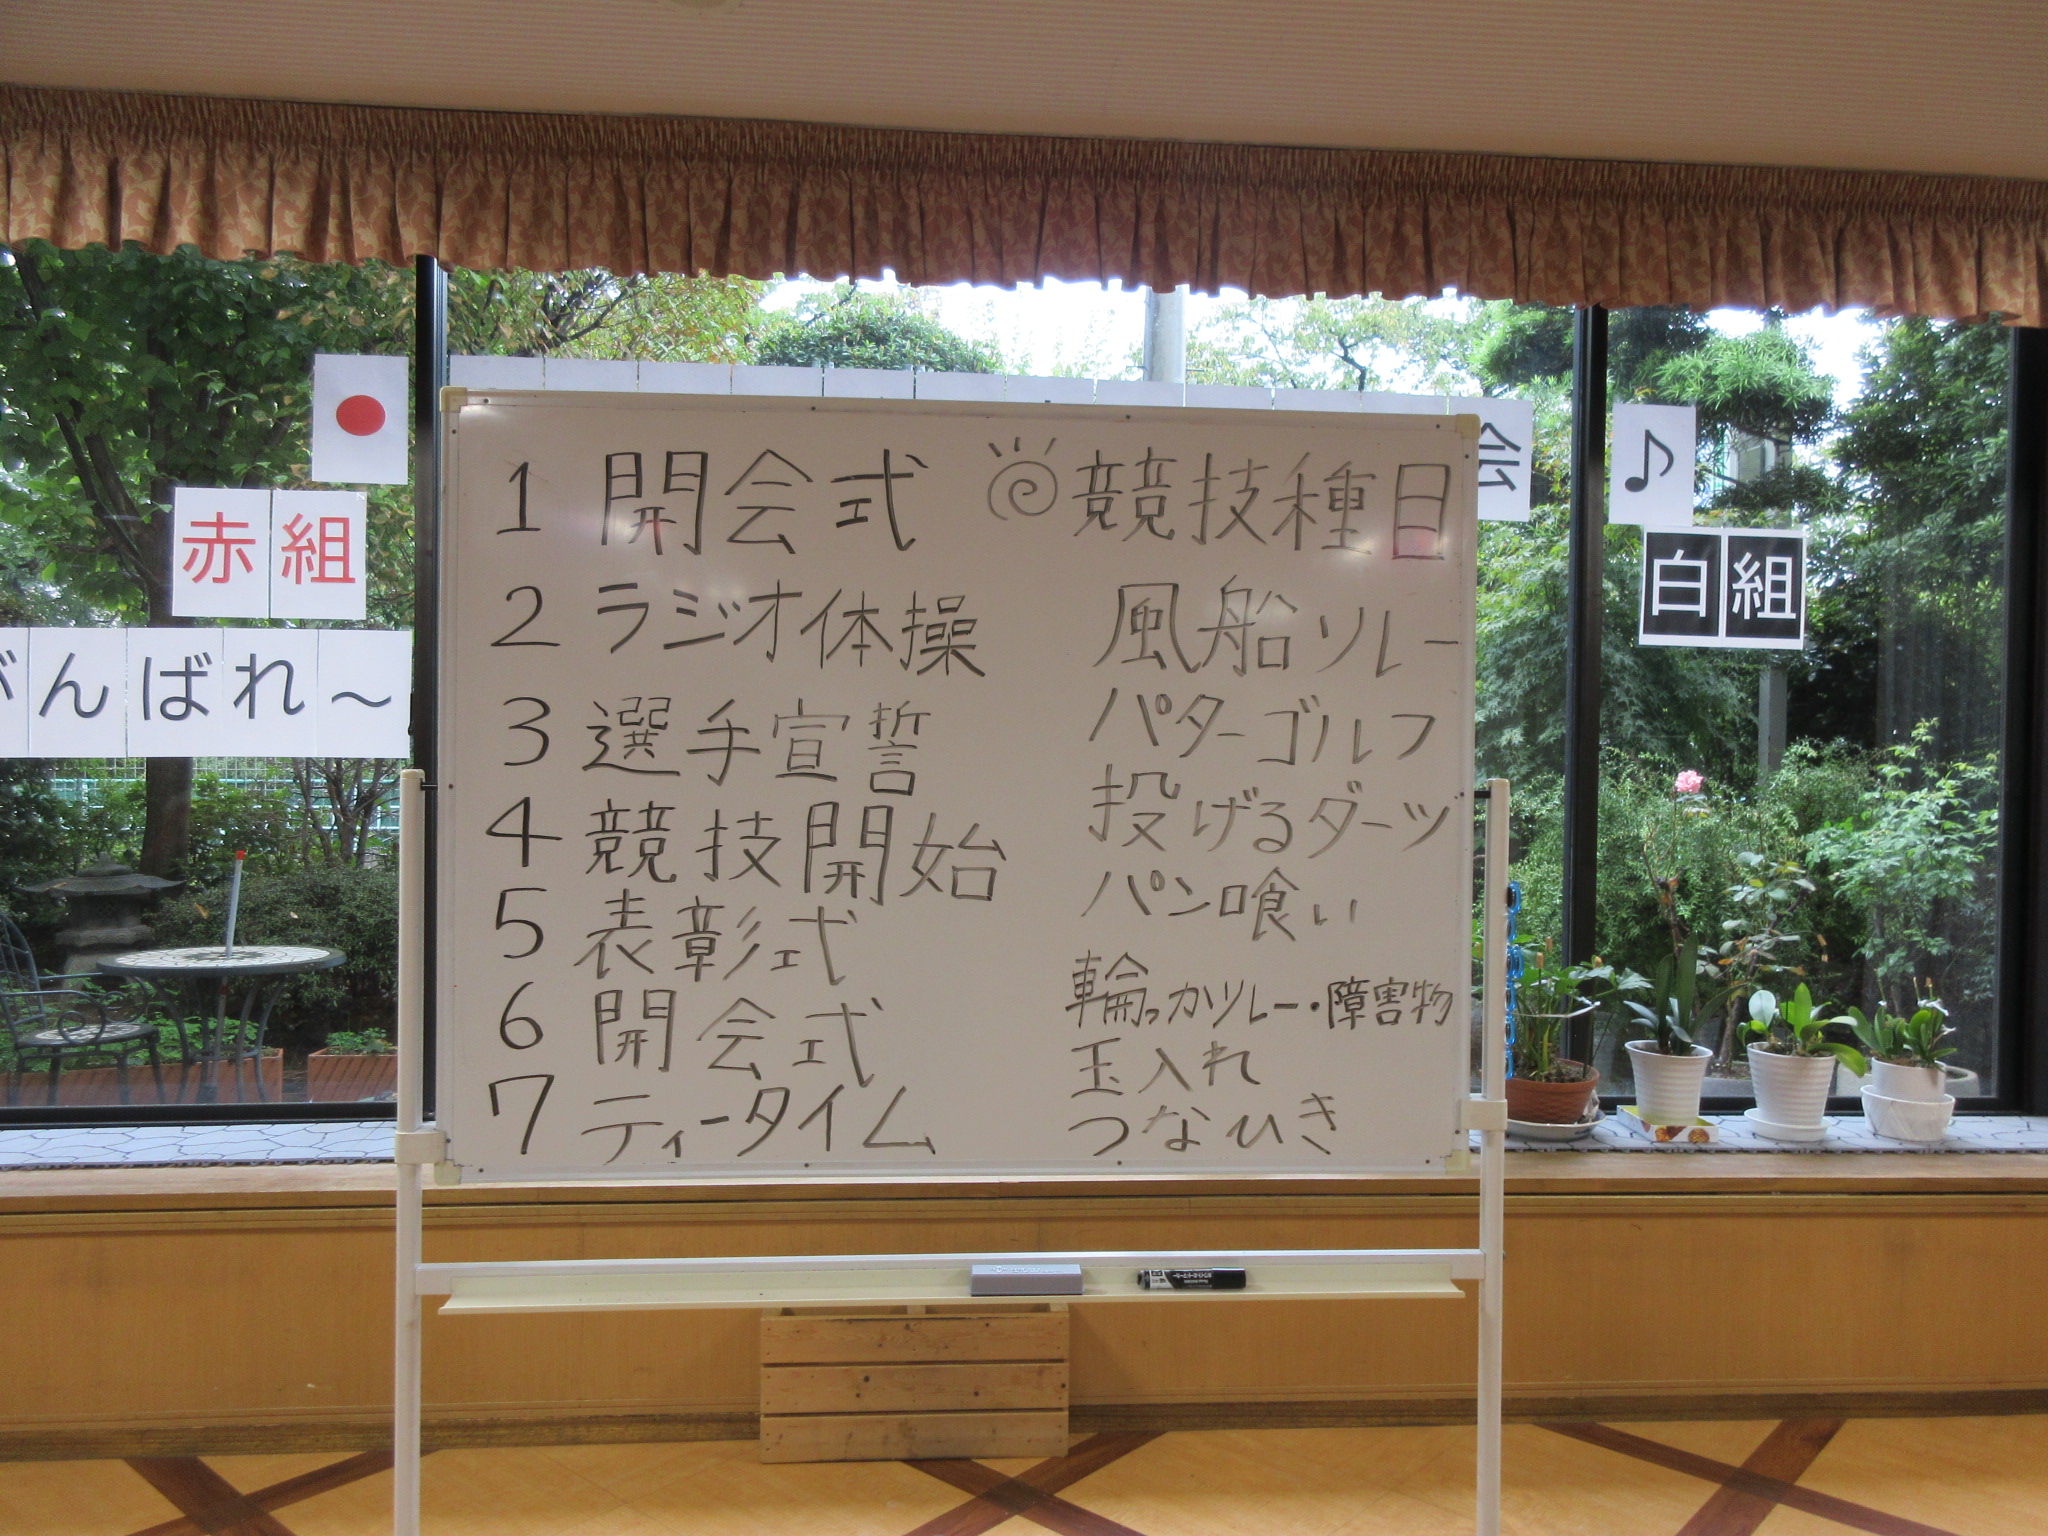 会
♪
赤組
がんばれ～
白組
1 開会式
2 ラジオ体操
3 選手宣誓
4 競技開始
5 表彰式
6 開会式
7 ティータイム
競技種目
風船リレー
パターゴルフ
投げるダーツ
パン喰い
輪っかリレー・障害物
玉入れ
つなひき